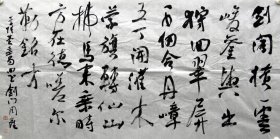 剑阁横云
峻銮舆出
狩回翠屏
仞合丹嶂
五丁开灌木
萦旗转仙
拂马来乘时
方在德嗟尔
勒铭才